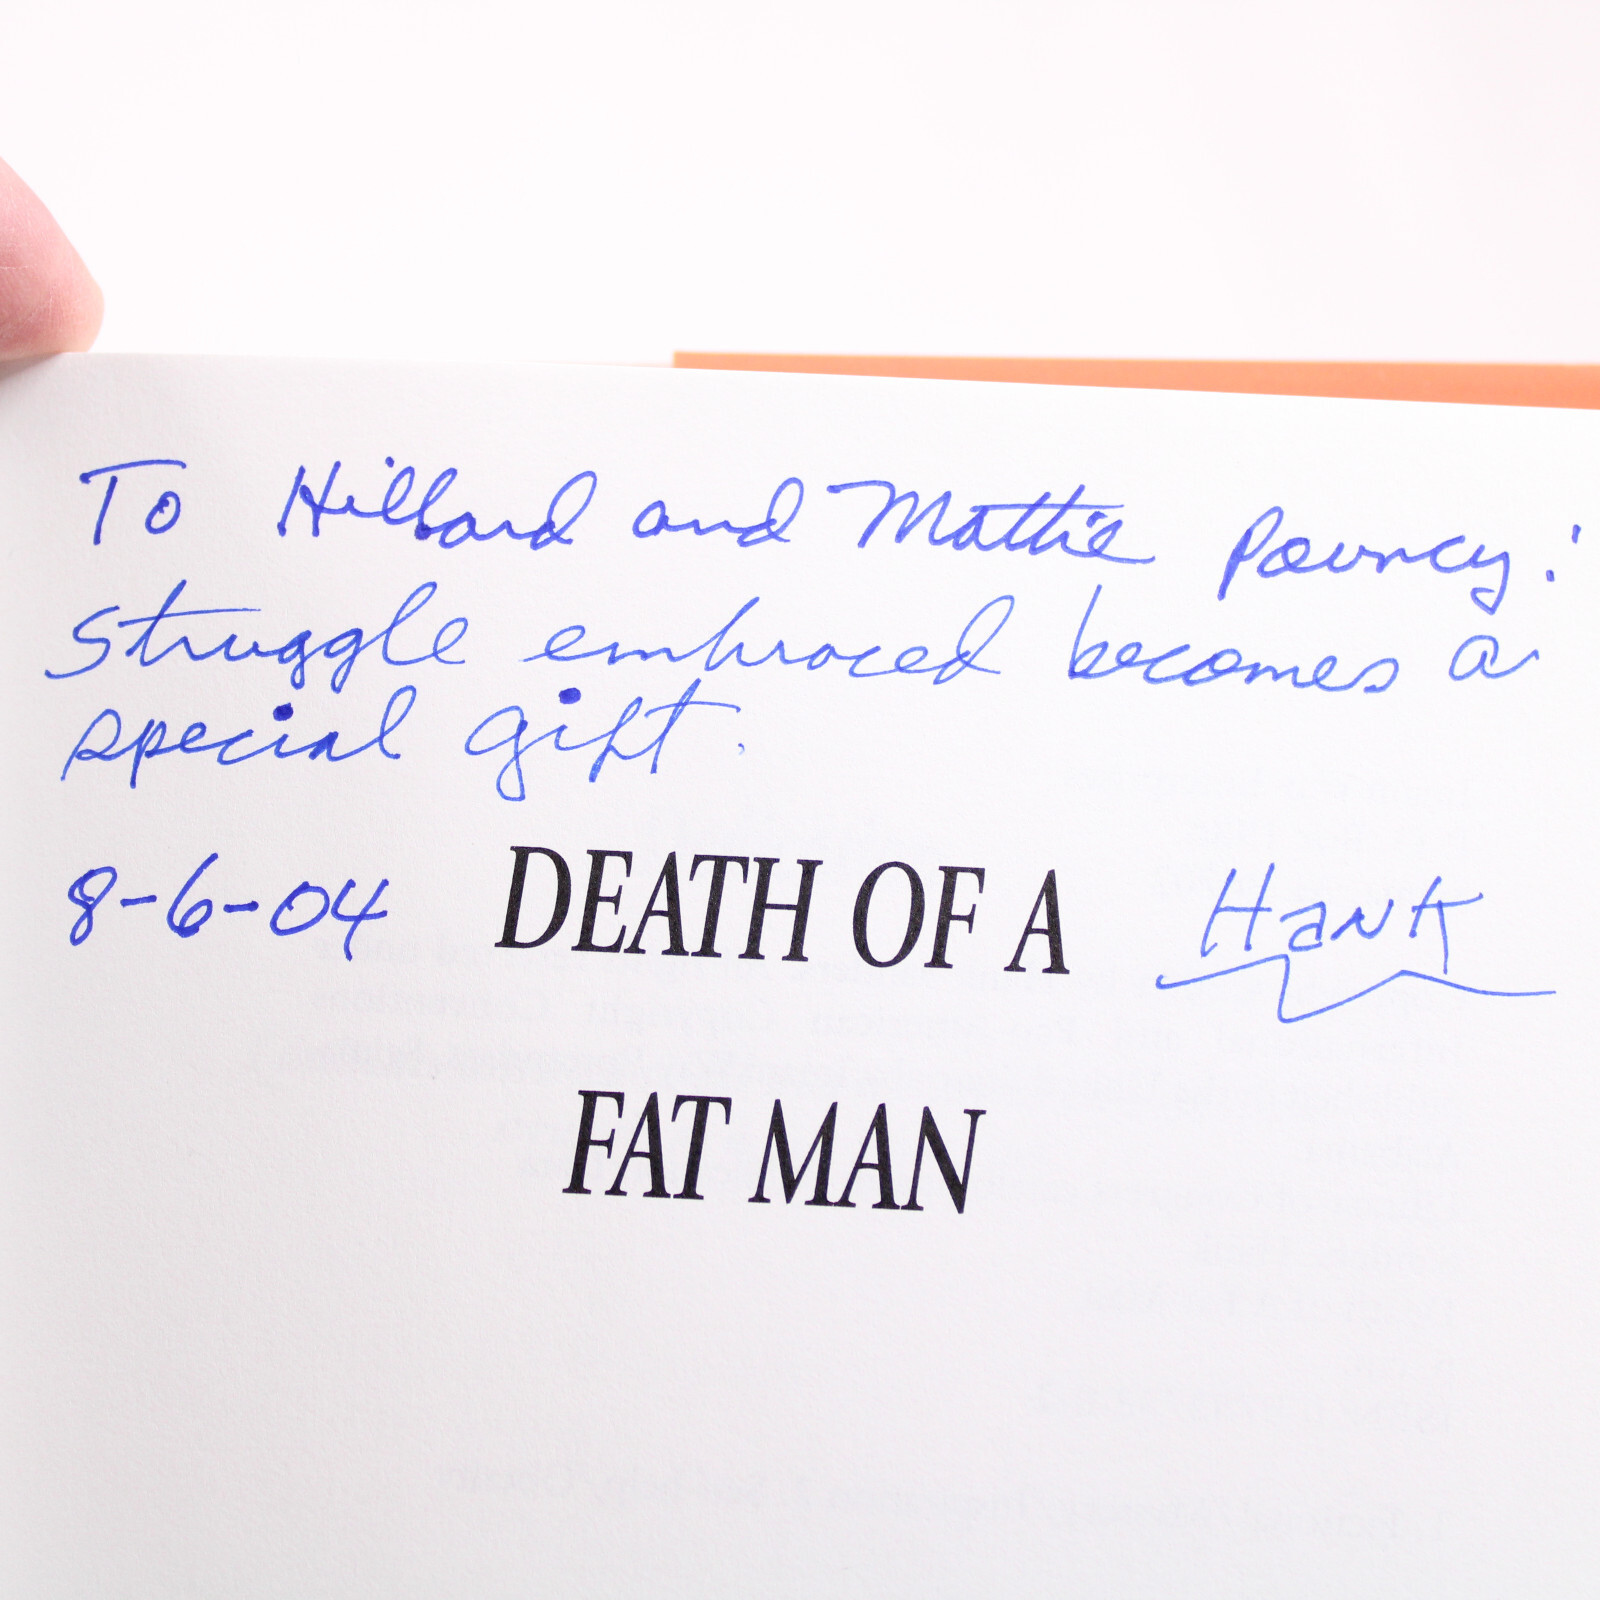 To Hillard and Mattie Pouncy:
Struggle embraced becomes a
special gift.
8-6-04 DEATH OF A Hank
FAT MAN